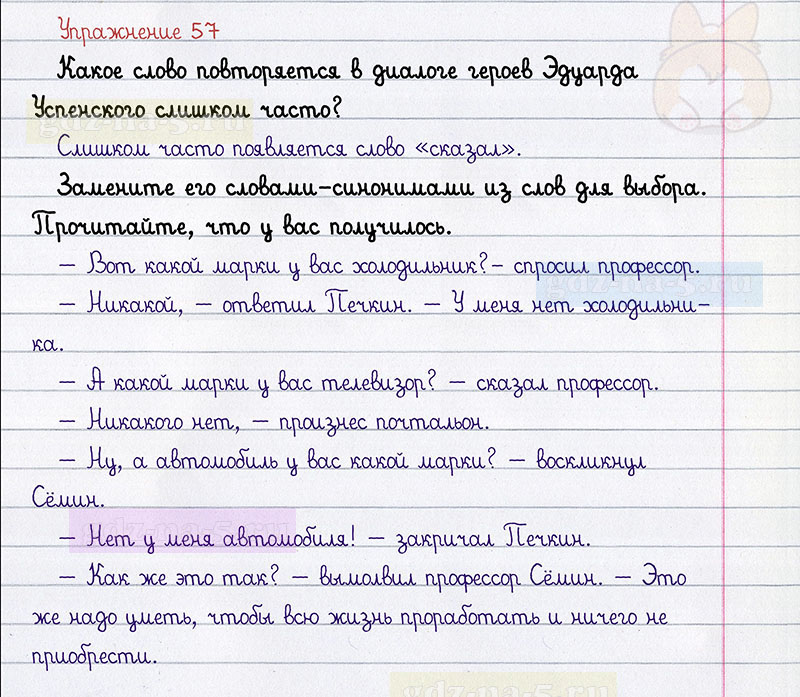 Упражнение 57
Какое слово повторяется в диалоге героев Эдуарда
Успенского слишком часто?
Слишком часто появляется слово «сказал».
Замените его словами-синонимами из слов для выбора.
Прочитайте, что у вас получилось.
– Вот какой марки у вас холодильник?– спросил профессор.
– Никакой, – ответил Печкин. – У меня нет холодильни-
ка.
– А какой марки у вас телевизор? – сказал профессор.
– Никакого нет, – произнес почтальон.
– Ну, а автомобиль у вас какой марки? – воскликнул
Сёмин.
– Нет у меня автомобиля! – закричал Печкин.
– Как же это так? – вымолвил профессор Сёмин. – Это
же надо уметь, чтобы всю жизнь проработать и ничего не
приобрести.
gdz-na-5.ru
gdz-na-5.ru
gdz-na-5.ru
gdz-na-5.ru